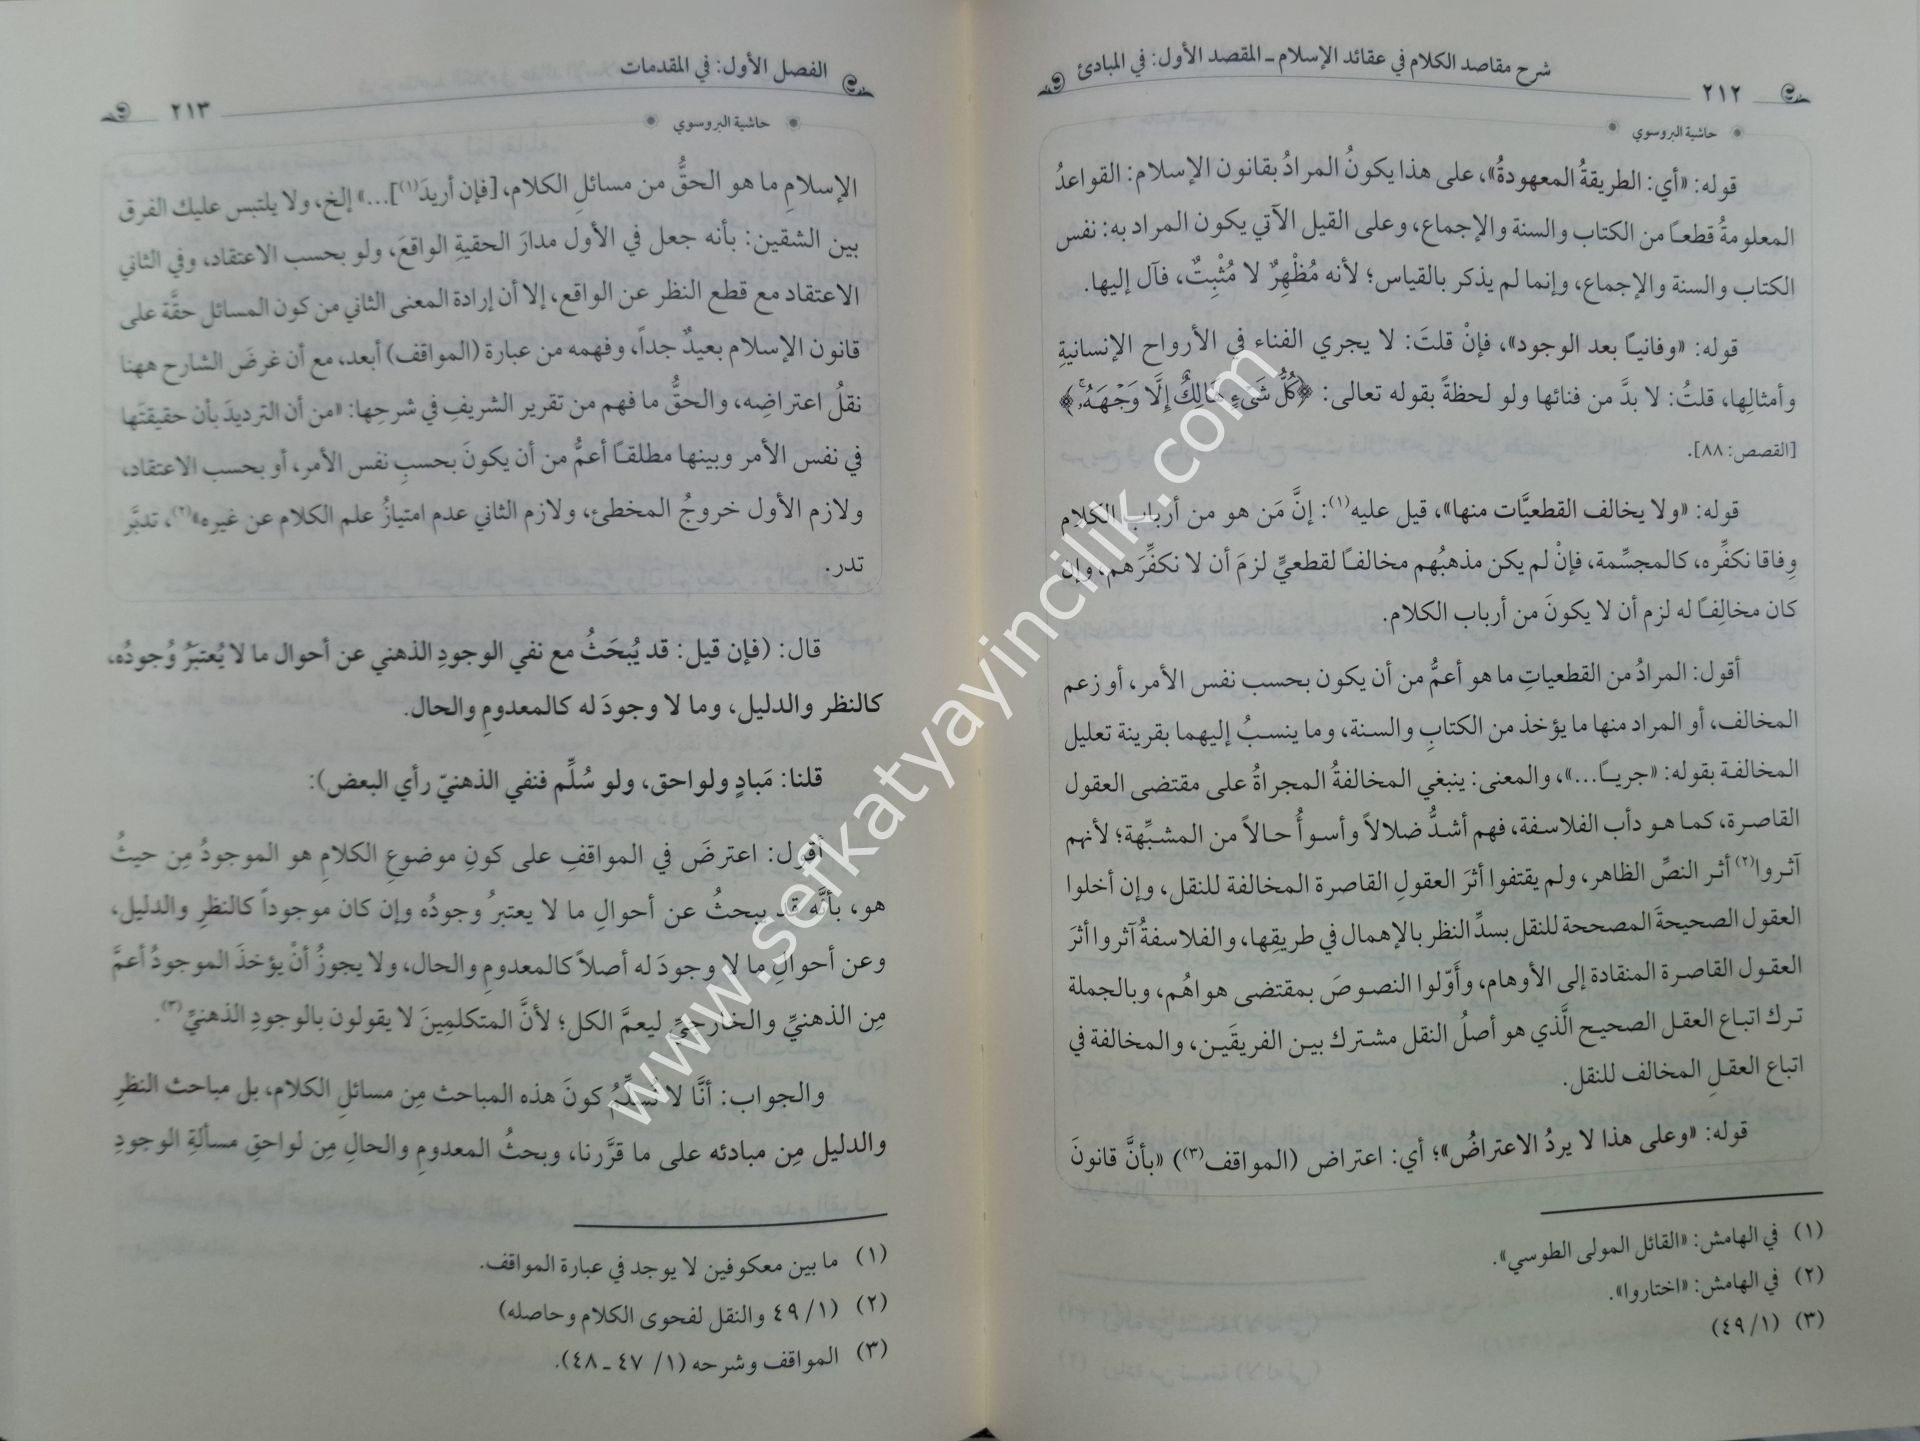 شرح مقاصد الكلام في عقائد الإسلام ـ المقصد الأول: في المبادئ
٢١٢
حاشية البروسوي
قوله: «أي: الطريقةُ المعهودةُ»، على هذا يكونُ المرادُ بقانون الإسلام: القواعدُ
المعلومةُ قطعـًا من الكتاب والسنة والإجماع، وعلى القيل الآتي يكون المراد به: نفس
الكتاب والسنة والإجماع، وإنما لم يذكر بالقياس؛ لأنه مُظْهِرٌ لا مُثْبِتٌ، فآل إليها.
قوله: «وفانيـًا بعد الوجود»، فإنْ قلتَ: لا يجري الفناء في الأرواح الإنسانيةِ
وأمثالِها، قلتُ: لا بدَّ من فنائها ولو لحظةً بقوله تعالى: ﴿كُلُّ شَىْءٍ هَالِكٌ إِلَّا وَجْهَهُۥ﴾
[القصص: ٨٨].
قوله: «ولا يخالف القطعيَّات منها»، قيل عليه(١): إنَّ مَن هو من أرباب الكلام
وِفاقا نكفِّره، كالمجسِّمة، فإنْ لم يكن مذهبُهم مخالفـًا لقطعيٍّ لزمَ أن لا نكفِّرَهم، وإن
كان مخالِفـًا له لزم أن لا يكونَ من أرباب الكلام.
أقول: المرادُ من القطعياتِ ما هو أعمُّ من أن يكون بحسب نفس الأمر، أو زعم
المخالف، أو المراد منها ما يؤخذ من الكتابِ والسنة، وما ينسـبُ إليهما بقرينة تعليل
المخالفـة بقوله: «جريـًا...»، والمعنى: ينبغي المخالفةُ المجراةُ على مقتضى العقول
القاصرة، كمـا هـو دأب الفلاسفة، فهم أشدُّ ضلالاً وأسوأُ حـالاً من المشبِّهة؛ لأنهم
آثـروا(٢) أثـر النصِّ الظاهر، ولم يقتفوا أثرَ العقولِ القاصرة المخالفة للنقل، وإن أخلوا
العقول الصحيحةَ المصححة للنقل بسدِّ النظر بالإهمال في طريقِها، والفلاسفةُ آثروا أثرَ
العقول القاصرة المنقادة إلى الأوهام، وأَوّلوا النصـوصَ بمقتضى هواهُم، وبالجملة
تـرك اتبـاع العقـل الصحيح الَّذي هو أصلُ النقل مشـترك بيـن الفريقَيـن، والمخالفة في
اتباع العقلِ المخالف للنقل.
قوله: «وعلى هذا لا يردُ الاعتراضُ»؛ أي: اعتراض (المواقف(٣)) «بأنَّ قانونَ
(١) في الهامش: «القائل المولى الطوسي».
(٢) في الهامش: «اختاروا».
(٣) (١/ ٤٩)
الفصل الأول: في المقدمات
٢١٣
حاشية البروسوي
الإسلامِ ما هو الحقُّ من مسائلِ الكلام، [فإن أريدَ(١)]...» إلخ، ولا يلتبس عليك الفرق
بين الشقين: بأنه جعل في الأول مدارَ الحقيةِ الواقعَ، ولو بحسب الاعتقاد، وفي الثاني
الاعتقاد مع قطع النظر عن الواقع، إلا أن إرادة المعنى الثاني من كون المسائل حقَّة على
قانون الإسلام بعيدٌ جداً، وفهمه من عبارة (المواقف) أبعد، مع أن غرضَ الشارح ههنا
نقلُ اعتراضِه، والحقُّ ما فهم من تقرير الشريفِ في شرحِها: «من أن الترديدَ بأن حقيقتَها
في نفس الأمر وبينها مطلقـًا أعمُّ من أن يكونَ بحسبِ نفس الأمر، أو بحسب الاعتقاد،
ولازم الأول خروجُ المخطئ، ولازم الثاني عدم امتيازُ علم الكلام عن غيره»(٢)، تدبَّر
تدر.
قال: (فإن قيل: قد يُبحَثُ مع نفي الوجودِ الذهني عن أحوال ما لا يُعتبَرُ وُجودُه،
كالنظر والدليل، وما لا وجودَ له كالمعدومِ والحال.
قلنا: مَبادٍ ولواحق، ولو سُلِّم فنفي الذهنيّ رأي البعض):
أقول: اعترضَ في المواقفِ على كونِ موضوعِ الكلامِ هو الموجودُ مِن حيثُ
هو، بأنَّه قد يبحثُ عن أحوالِ ما لا يعتبرُ وجودُه وإن كان موجوداً كالنظرِ والدليل،
وعن أحوالِ ما لا وجودَ له أصلاً كالمعدومِ والحال، ولا يجوزُ أنْ يؤخذَ الموجودُ أعمَّ
مِن الذهنيِّ والخارجيِّ ليعمَّ الكل؛ لأنَّ المتكلمِينَ لا يقولون بالوجودِ الذهنيِّ(٣).
والجواب: أنَّا لا نُسلِّمُ كونَ هذه المباحث مِن مسائلِ الكلام، بل مباحث النظرِ
والدليل مِن مبادئه على ما قرَّرنا، وبحثُ المعدومِ والحالِ مِن لواحقِ مسألةِ الوجودِ
(١) ما بين معكوفين لا يوجد في عبارة المواقف.
(٢) (١/ ٤٩ والنقل لفحوى الكلام وحاصله)
(٣) المواقف وشرحه (١/ ٤٧ ـ ٤٨).
www.sefkatyayincilik.com